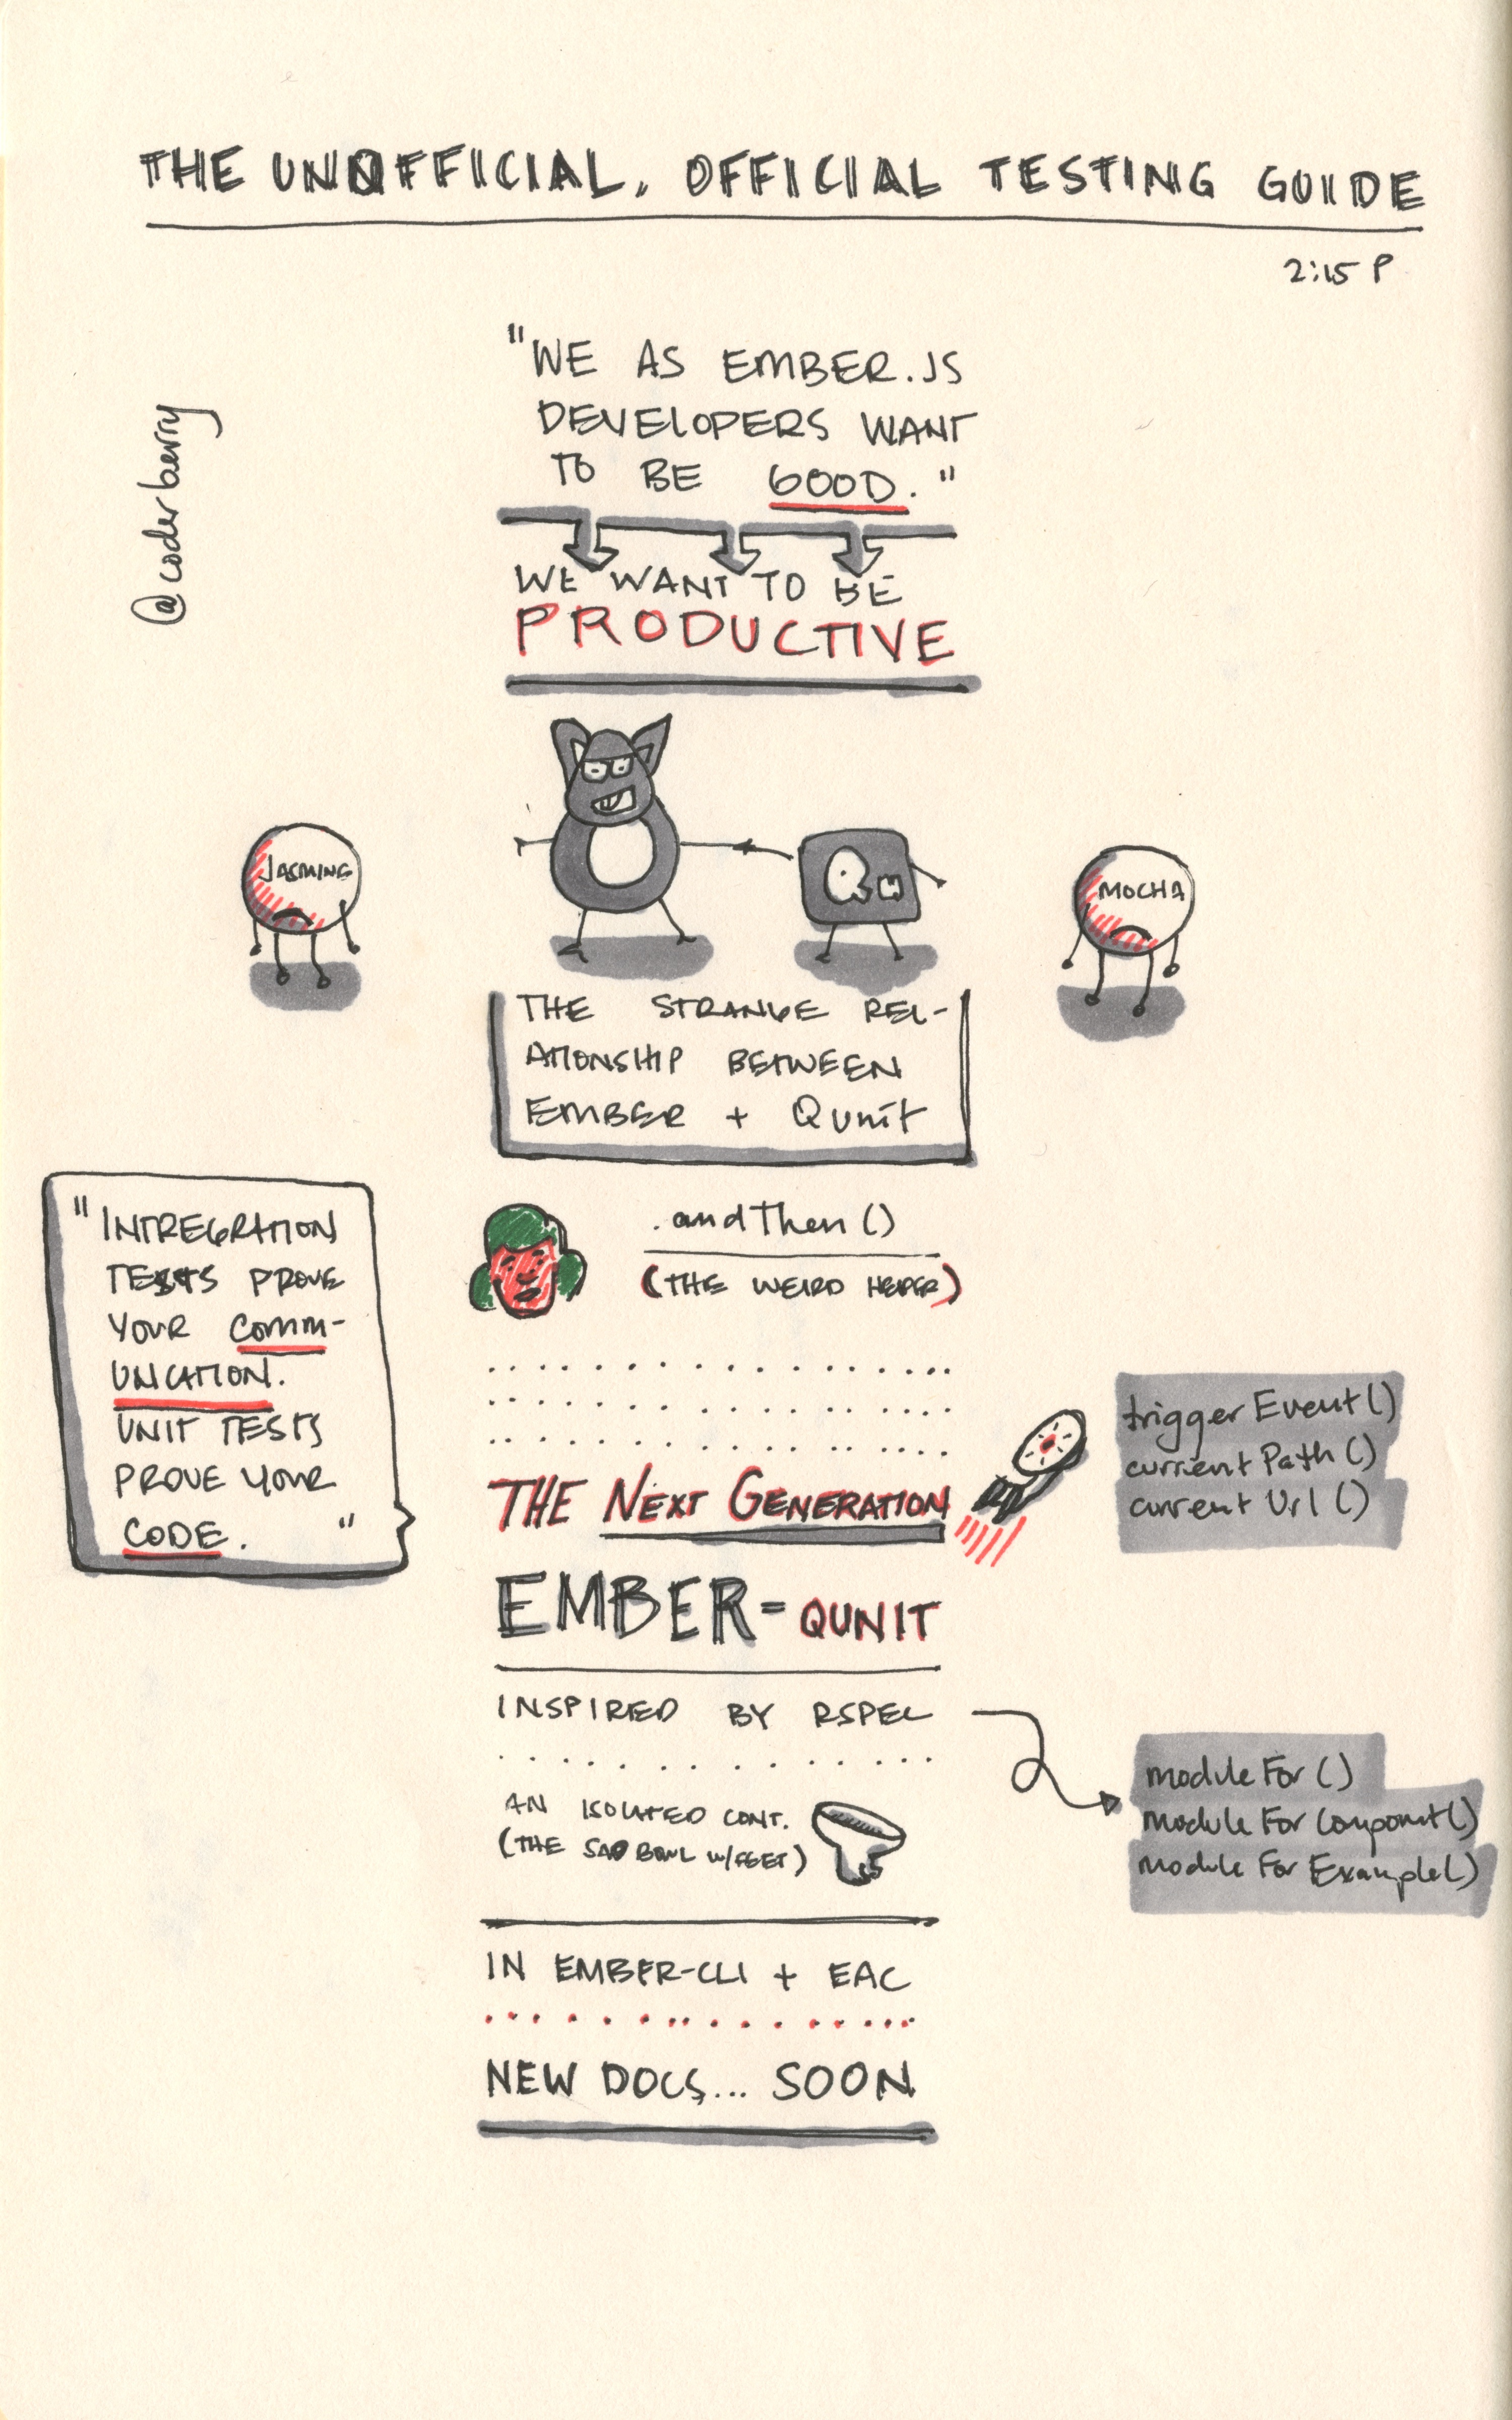 THE UNOFFICIAL, OFFICIAL TESTING GUIDE
2:15 P
@coderberry
"WE AS EMBER.JS
DEVELOPERS WANT
TO BE GOOD."
WE WANT TO BE
PRODUCTIVE
JASMINE
QU
MOCHA
THE STRANGE REL-
ATIONSHIP BETWEEN
EMBER + QUnit
"INTREGRATION
TESTS PROVE
YOUR COMM-
UNICATION.
UNIT TESTS
PROVE YOUR
CODE. "
.andThen()
(THE WEIRD HELPER)
THE NEXT GENERATION
triggerEvent()
currentPath()
currentUrl()
EMBER-QUNIT
INSPIRED BY RSPEC
moduleFor()
moduleForComponent()
moduleForExample()
AN ISOLATED CONT.
(THE SAD BOWL W/FEET)
IN EMBER-CLI + EAC
NEW DOCS... SOON